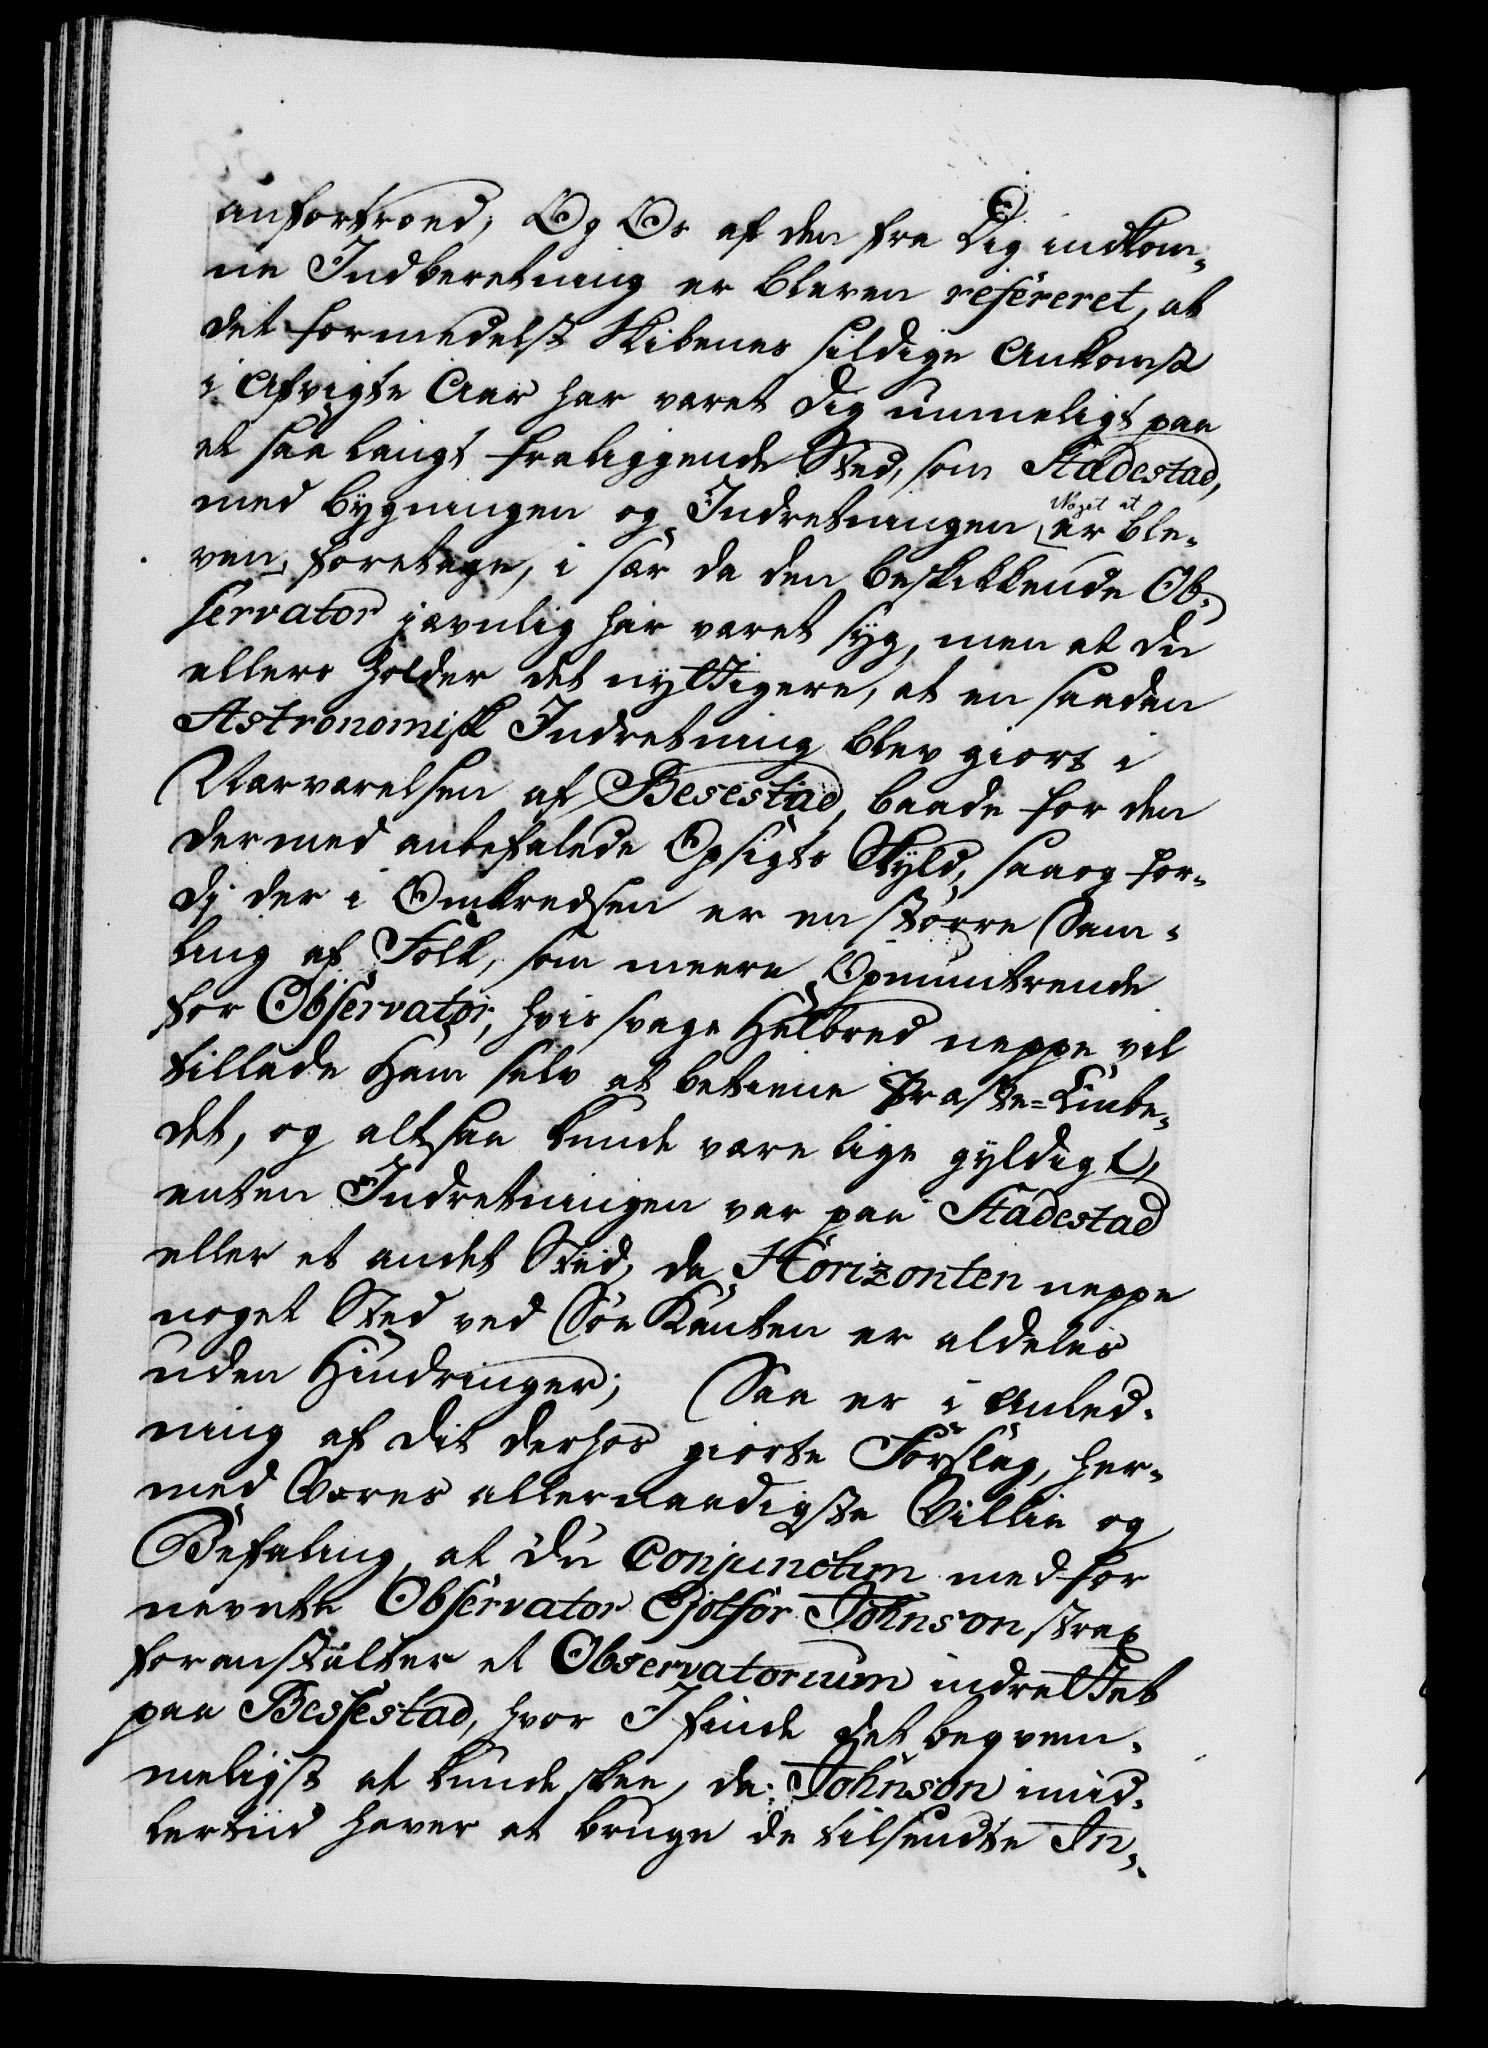 anfortroed; Og Os af den fra Dig indkom-
ne Indberetning er bleven refereret, at
det formedelst Skibenes sildige Ankomst
i Afvigte Aar har været Dig umueligt paa
et saa langt fraliggende Sted, som Stadestad,
med Bygningen og Indretningen Noget at er ble-
ven foretage, i sær da den beskikkende Ob-
servator jævnlig har været syg, men at Du
ellers holder det nyttigere, at en saadan
Astronomisk Indretning blev giort i
Nærværelsen af Besestad, baade for den
dermed anbefalede Opsigts Skyld, saa og for-
di der i Omkredsen er en større Sam-
ling af Folk, som meere Opmuntrende
for Observator, hvis svage Helbred neppe vil
tillade Ham selv at betiene Præste-Embe-
det, og altsaa kunde være lige gyldigt,
enten Indretningen var paa Stadestad
eller et andet Sted, da Horizonten neppe
noget Sted ved Søe Kanten er aldeles
uden Hindringer; Saa er i Anled-
ning af dit derhos giorte Forslag, her-
med Vores allernaadigste Villie og
Befaling, at Du conjunctim med for
nevnte Observator Ejolfor Johnson strax
foranstalter et Observatorium indrettet
paa Bessestad, hvor I finde det beqvem-
meligst at kunde skee, da Johnson imid-
lertiid haver at bruge de tilsendte In-